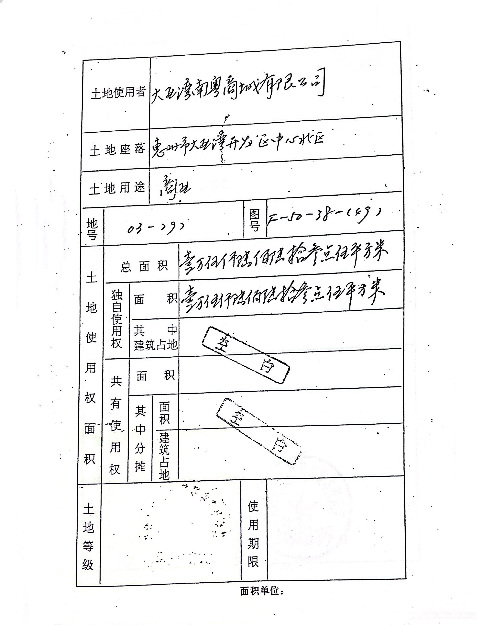 土地使用者 大亚湾南粤商城有限公司
土地座落 惠州市大亚湾开发区中心北区
土地用途 商业
地号 03- 图号 F-50-38-(49)
土地使用权面积
总面积 壹万伍仟陆佰陆拾叁点伍平方米
独自使用权 面积 壹万伍仟陆佰陆拾叁点伍平方米
其中建筑占地 空白
共有使用权 面积
其中分摊 面积 空白
建筑占地
土地等级 使用期限
面积单位：